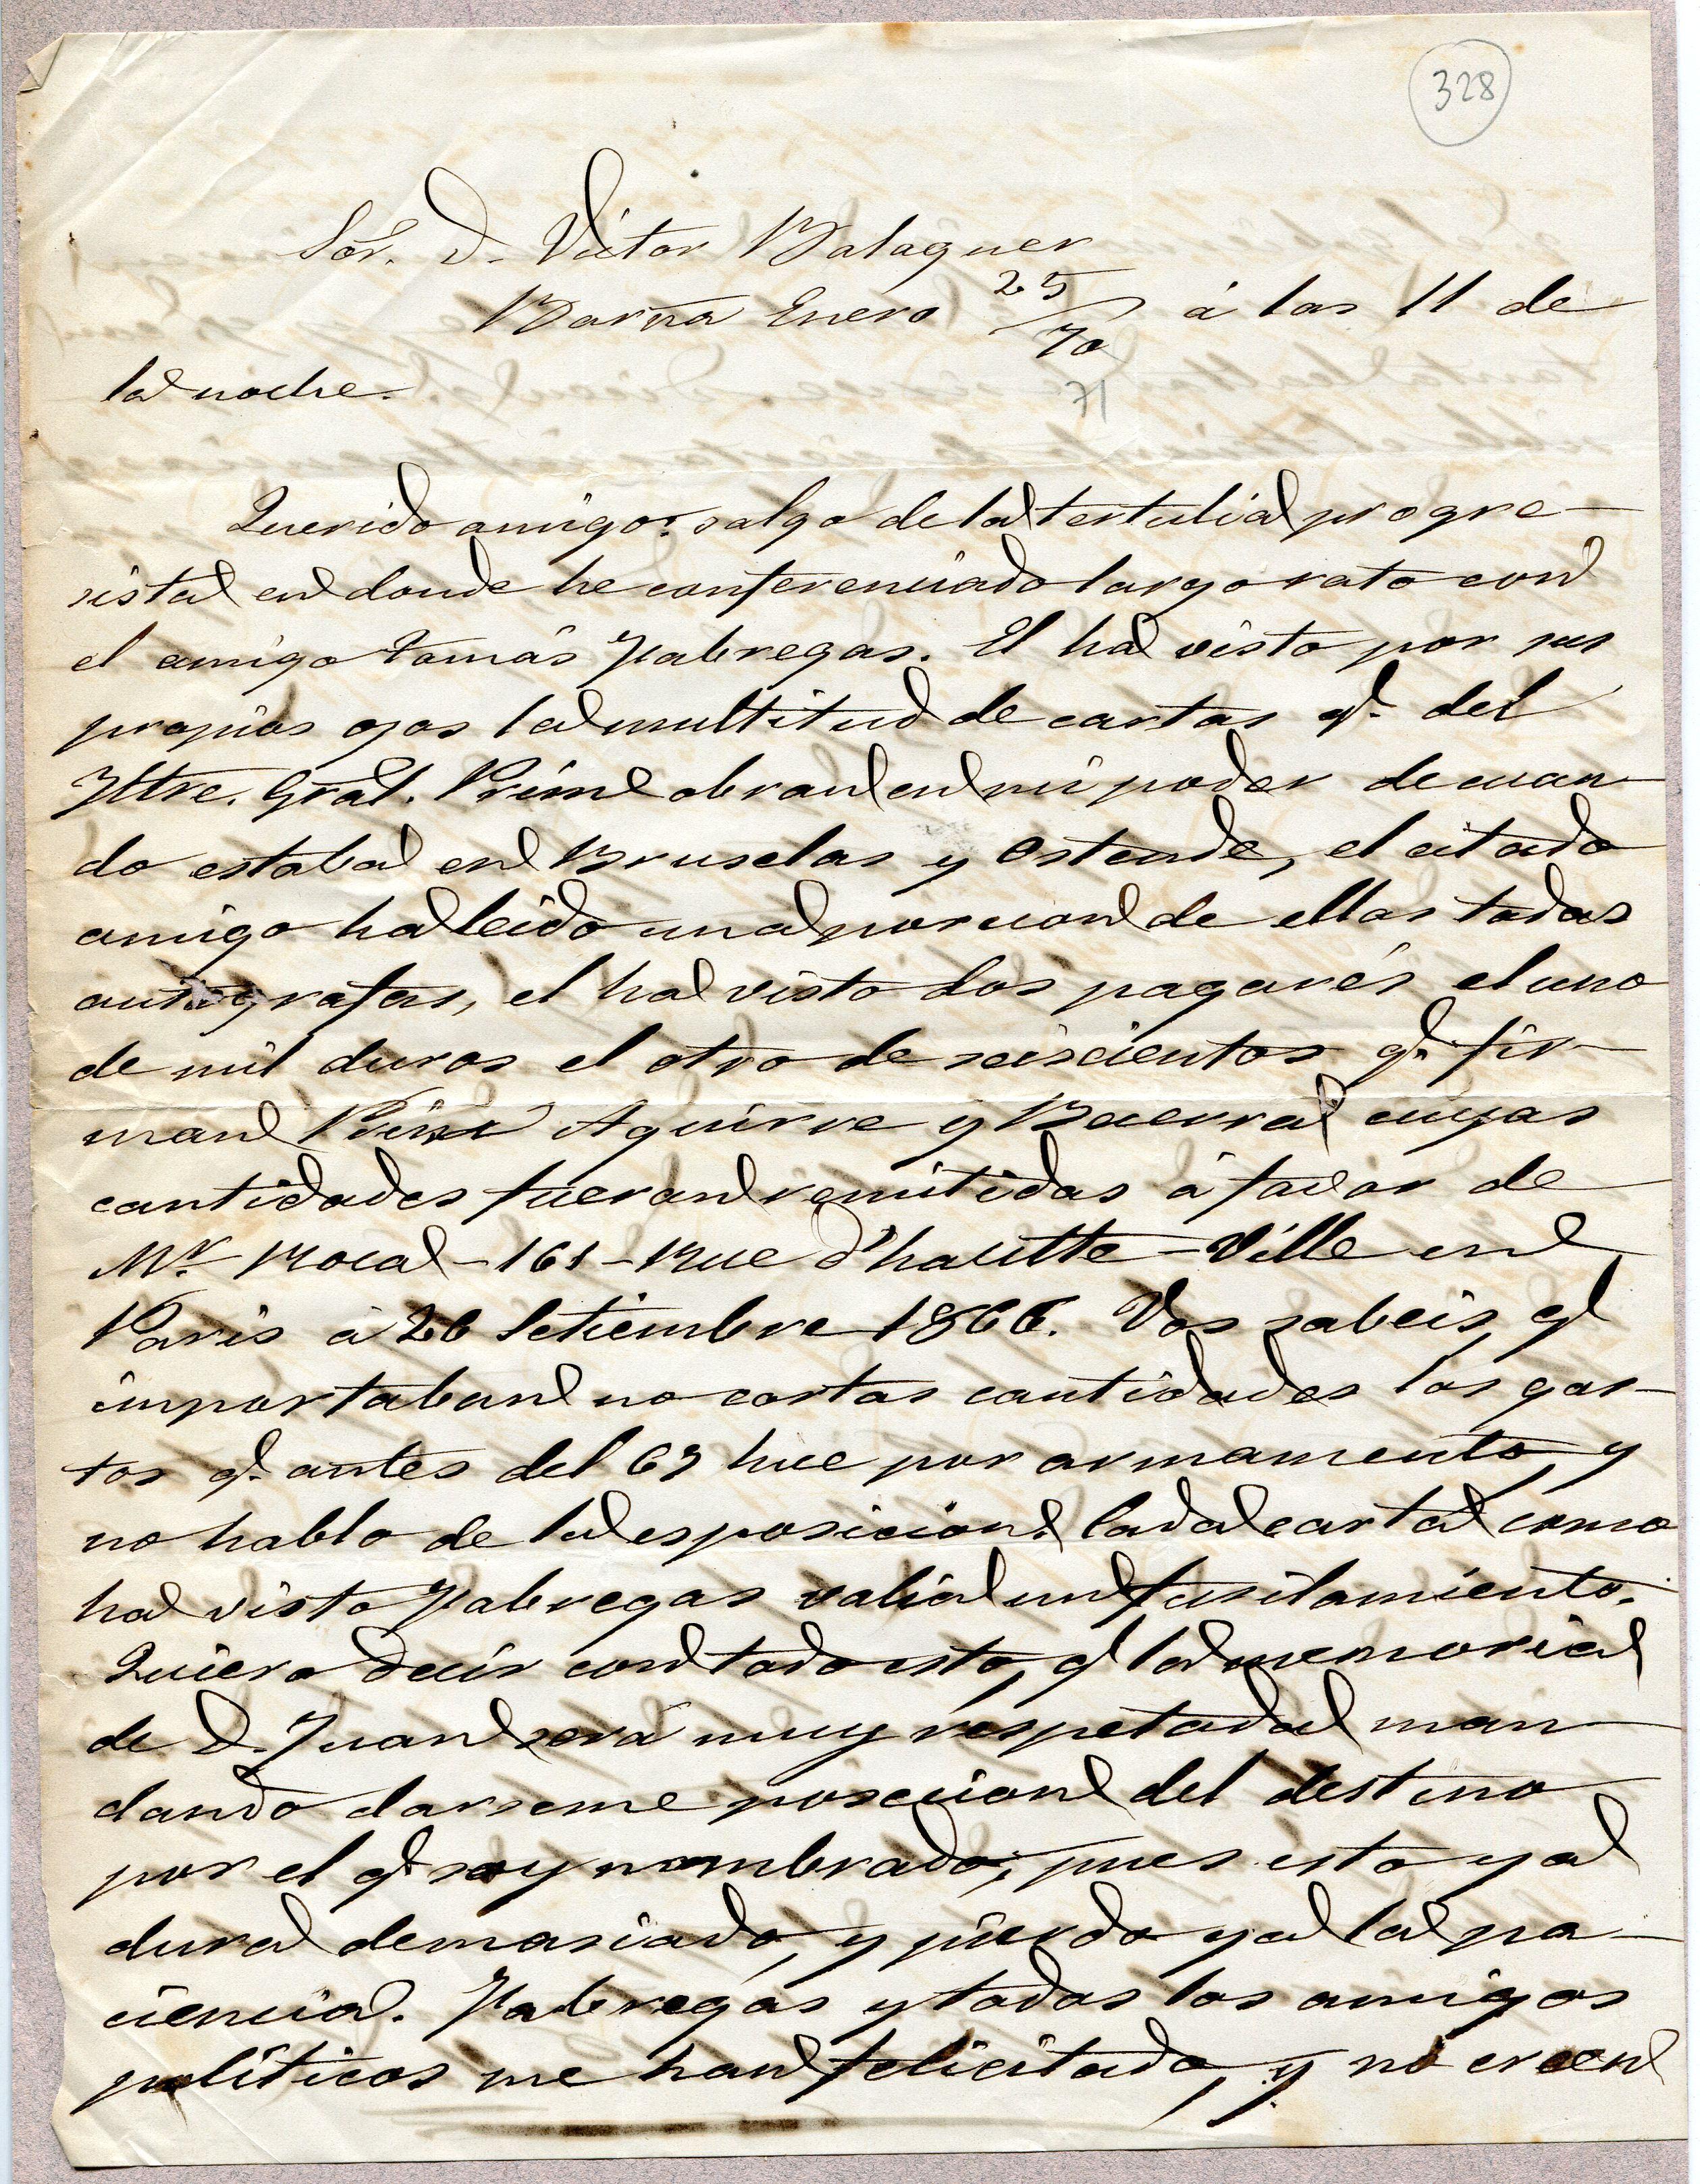 328
Sor. D. Victor Balaguer
Barna Enero 25/70 á las 11 de
71
la noche.
Querido amigo: salgo de la tertulia progre-
sista en donde he conferenciado largo rato con
el amigo Tomás Fabregas. El ha visto por sus
propios ojos la multitud de cartas q.e del
Iltre. Gral. Prim obran en mi poder de cuan-
do estaba en Bruselas y Ostende, el citado
amigo ha leido una porcion de ellas todas
autografas, el ha visto dos pagarés el uno
de mil duros el otro de seiscientos q.e fir-
man Prim Aguirre y Becerra cuyas
cantidades fueron remitidas á favor de
Mr. Roca - 161 - Rue d'hautte-Ville en
Paris á 26 Setiembre 1866. Vos sabeis q.e
importaban no cortas cantidades los gas-
tos q.e antes del 69 hice por armamento, y
no hablo de la esposicion. Cada carta como
ha visto Fabregas valia un fusilamiento.
Quiero decir con todo esto, q.e la memoria
de D. Juan será muy respetada man-
dando darseme posecion del destino
por el q.e soy nombrado, pues esto ya
dura demasiado, y pierdo ya la pa-
ciencia. Fabregas y todos los amigos
políticos me han felicitado, y no creen